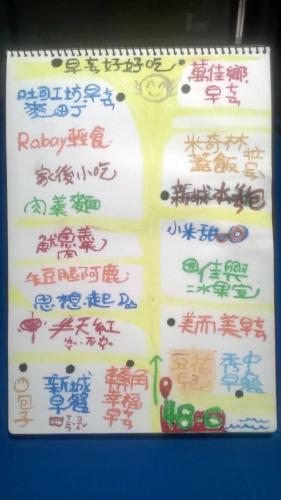 早去好好吃
吐司工坊早点
麥町
Rabay輕食
家後小吃
肉羹麵
魷魚羹
朱豆腿阿鹿
思想起
天紅
包子
新城
早餐
轉角
幸福
早去
萬佳鄉
早去
米奇林
蓋飯
新城水煎包
小米甜
佳興
冰果室
美而美早去
豆花
秀中
早餐